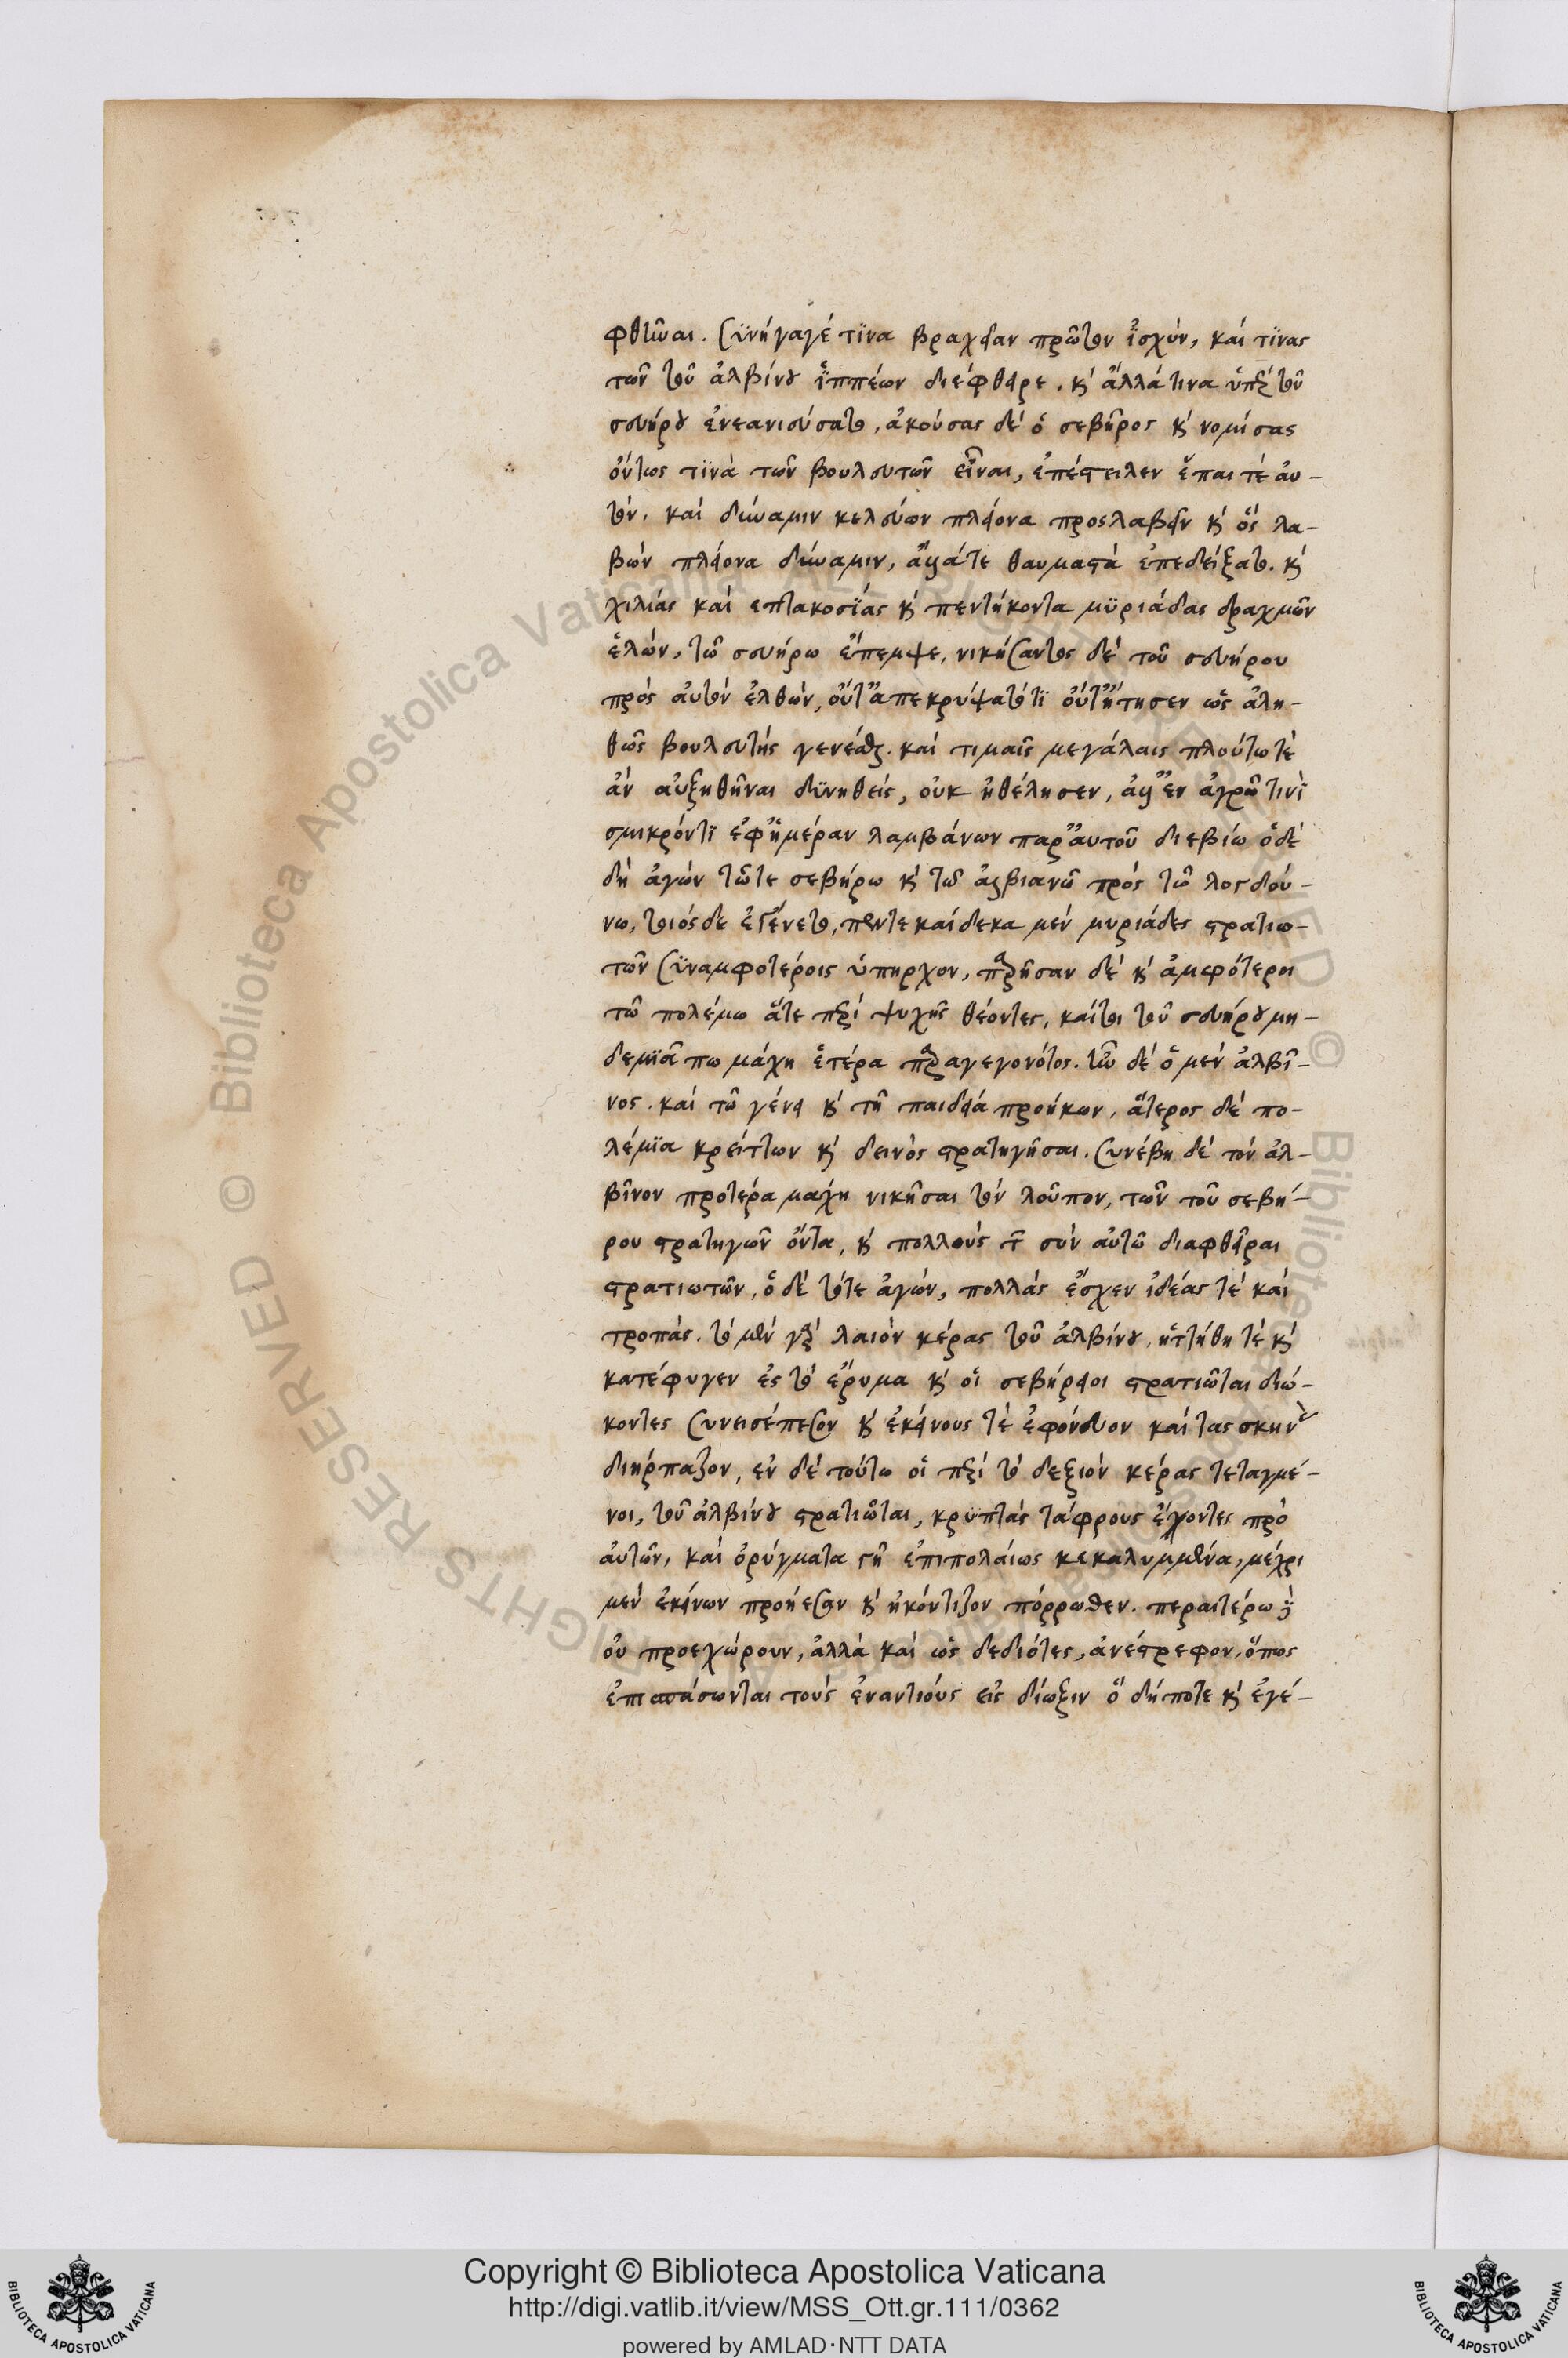 φθῆναι. συνήγαγέ τινα βραχεῖαν πρῶτον ἰσχύν, καί τινας
τῶν τοῦ ἀλβίνου ἱππέων διέφθειρε. κ' ἄλλά τινα ὑπὲρ τοῦ
σευήρου ἐνεανιεύσατο, ἀκούσας δὲ ὁ σεβῆρος κ' νομίσας
ὄντως τινὰ τῶν βουλευτῶν εἶναι, ἐπέστειλεν ἔπαι τὲ αὐ-
τόν. καὶ δύναμιν κελεύων πλείονα προσλαβεῖν κ' ὃς λα-
βὼν πλείονα δύναμιν, ἄλλάτε θαυμαστὰ ἐπεδείξατο. κ'
χιλίας καὶ επτακοσίας κ' πεντήκοντα μυριάδας δραχμῶν
ἑλών, τῶ σευήρω ἔπεμψε, νικήσαντος δὲ τοῦ σευήρου
πρὸς αὐτὸν ἐλθών, οὔτ' ἀπεκρύψατό τι οὔτ' ἤτησεν ὡς ἀλη-
θῶς βουλευτὴς γενέσθαι. καὶ τιμαῖς μεγάλαις πλούτω τὲ
ἂν αὐξηθῆναι δυνηθείς, οὐκ ἠθέλησεν, ἀλλ' ἐν ἀγρῶ τινὶ
σμικρόν τι ἐφ' ἡμέραν λαμβάνων παρ' αυτοῦ διεβίω ὁ δὲ
δὴ ἀγὼν τῶτε σεβήρω κ' τῶ ἀλβιανῶ πρὸς τῶ λουγδού-
νω, τοιόσδε ἐγένετο, πεντεκαίδεκα μὲν μυριάδες στρατιω-
τῶν συναμφοτέροις ὑπῆρχον, παρῆσαν δὲ κ' ἀμφότεροι
τῶ πολέμω ἅτε περὶ ψυχῆς θέοντες, καίτοι τοῦ σευήρου μη-
δεμιᾶ πω μάχη ἑτέρα παραγεγονότος. ἦν δὲ ὁ μὲν ἀλβῖ-
νος. καὶ τῶ γένει κ' τῆ παιδεία προήκων, ἅτερος δὲ πο-
λέμια κρείττων κ' δεινὸς στρατηγῆσαι. συνέβη δὲ τὸν ἀλ-
βῖνον προτέρα μάχη νικῆσαι τὸν λοῦπον, τῶν τοῦ σεβή-
ρου στρατηγῶν ὄντα, κ' πολλοὺς τῶν σὺν αὐτῶ διαφθεῖραι
στρατιωτῶν, ὁ δὲ τότε ἀγών, πολλὰς ἔσχεν ἰδέας τὲ καὶ
τροπάς. τὸ μὲν γὰρ λαιὸν κέρας τοῦ ἀλβίνου, ἡττήθη τὲ κ'
κατέφυγεν ἐς τὸ ἔρυμα κ' οἱ σεβήρειοι στρατιῶται διώ-
κοντες συνεισέπεσον κ' ἐκείνους τὲ ἐφόνευον καὶ τας σκηνὰς
διήρπαζον, εν δὲ τούτω οἱ περὶ τὸ δεξιὸν κέρας τεταγμέ-
νοι, τοῦ ἀλβίνου στρατιῶται, κρυπτὰς τάφρους ἔχοντες πρὸ
αὐτῶν, καὶ ὀρύγματα γῆ ἐπιπολαίως κεκαλυμμένα, μέχρι
μὲν ἐκείνων προήεσαν κ' ἠκόντιζον πόρρωθεν. περαιτέρω δὲ
οὐ προεχώρουν, ἀλλὰ καὶ ὡς δεδιότες, ἀνέστρεφον, ὅπως
ἐπισπάσωνται τοὺς ἐναντιούς εἰς δίωξιν ὃ δήποτε κ' ἐγέ-
Copyright © Biblioteca Apostolica Vaticana
http://digi.vatlib.it/view/MSS_Ott.gr.111/0362
powered by AMLAD·NTT DATA